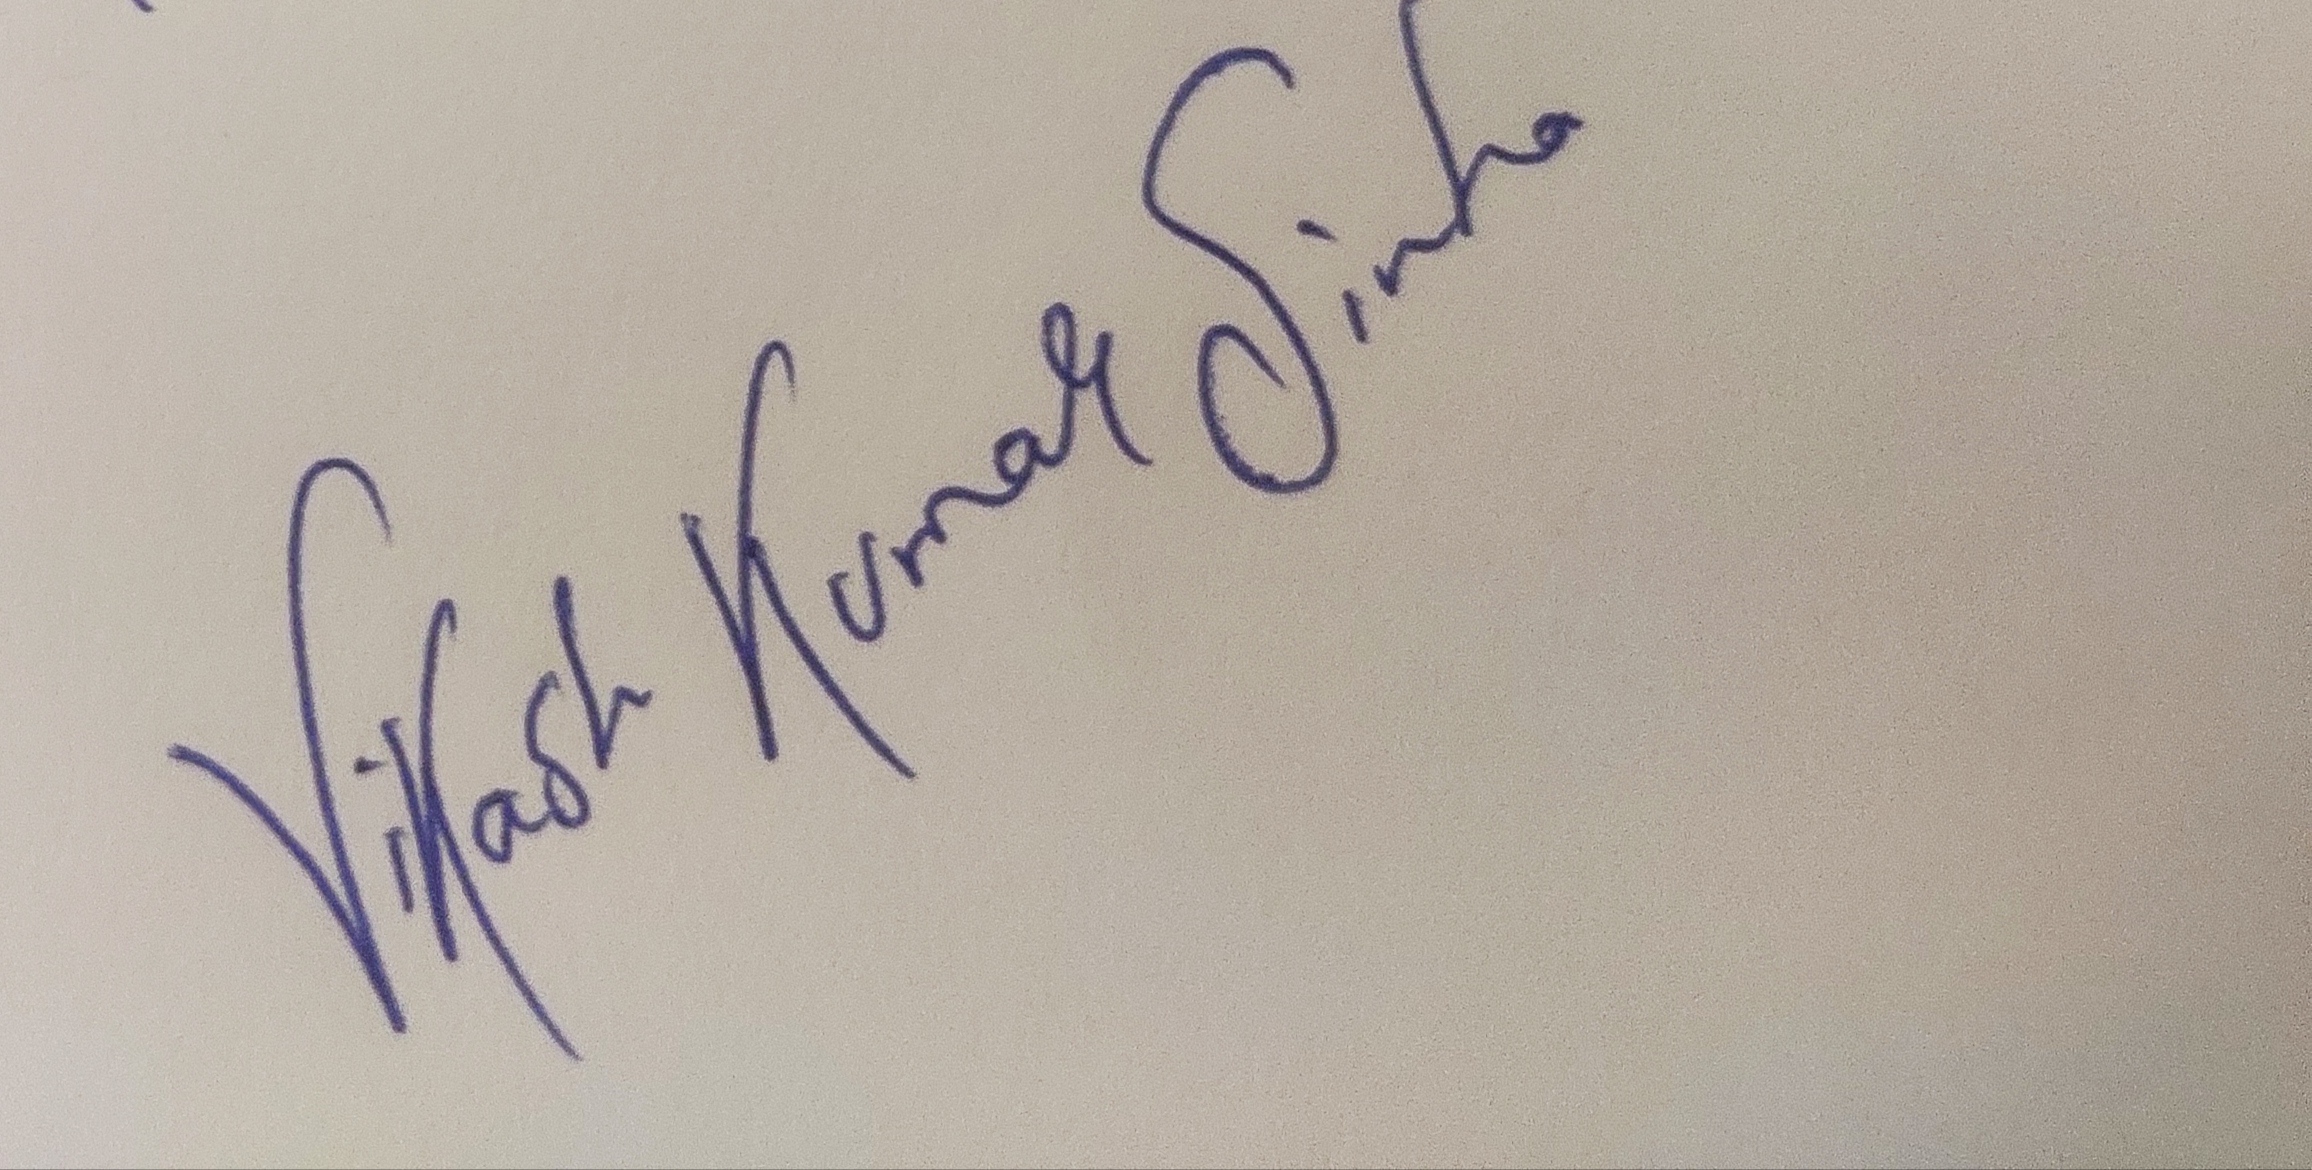 Vikash Kumar Sinha